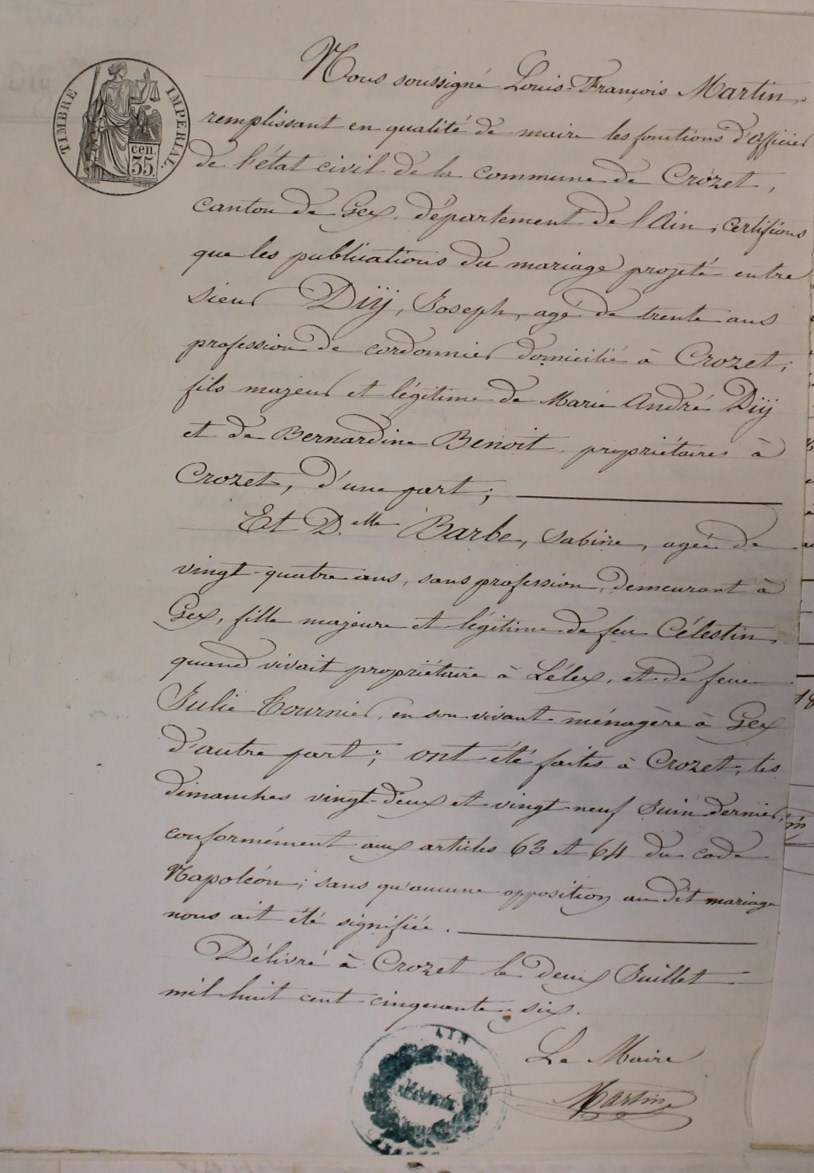 TIMBRE IMPERIAL.
cen.
35
Nous soussigné Louis-François Martin,
remplissant en qualité de maire les fonctions d'officier
de l'état civil de la commune de Crozet,
canton de Gex, département de l'Ain, certifions
que les publications du mariage projeté entre
sieur Diÿ, Joseph, agé de trente ans
profession de cordonnier domicilié à Crozet,
fils majeur et légitime de Marie André Diÿ
et de Bernardine Benoit, propriétaires à
Crozet, d'une part;
Et D.elle Barbe, Sabine, agée de
vingt-quatre ans, sans profession, demeurant à
Gex, fille majeure et légitime de feu Célestin,
quand vivait propriétaire à Lélex, et de feue
Julie Tournier, en son vivant ménagère à Gex
d'autre part; ont été faites à Crozet, les
dimanches vingt-deux et vingt neuf Juin dernier,
conformément aux articles 63 et 64 du code
Napoléon; sans qu'aucune opposition au dit mariage
nous ait été signifiée.
Délivré à Crozet le deux Juillet
mil huit cent cinquante-six.
Le Maire
Martin
AIN